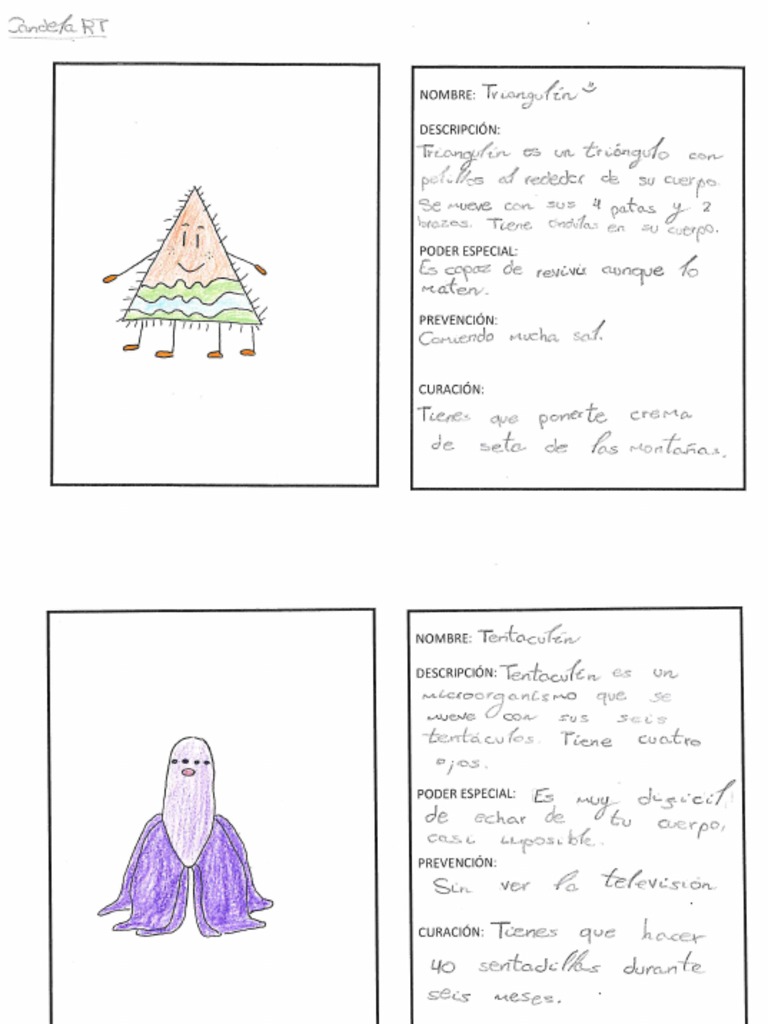 Candela RT
NOMBRE: Triangulín
DESCRIPCIÓN:
Triangulín es un triángulo con
pelillos al rededor de su cuerpo.
Se mueve con sus 4 patas y 2
brazos. Tiene ondulas en su cuerpo.
PODER ESPECIAL:
Es capaz de revivir aunque lo
maten.
PREVENCIÓN:
Comiendo mucha sal.
CURACIÓN:
Tienes que ponerte crema
de seta de las montañas.
NOMBRE: Tentaculín
DESCRIPCIÓN: Tentaculín es un
microorganismo que se
mueve con sus seis
tentáculos. Tiene cuatro
ojos.
PODER ESPECIAL: Es muy dificil
de echar de tu cuerpo,
casi imposible.
PREVENCIÓN:
Sin ver la televisión
CURACIÓN: Tienes que hacer
40 sentadillas durante
seis meses.